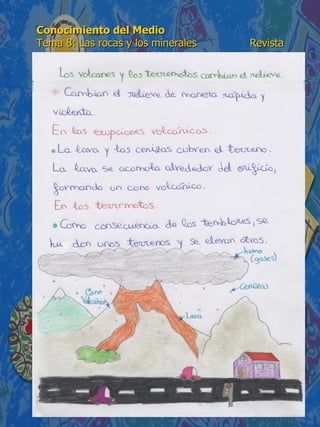 Conocimiento del Medio
Tema 8: Las rocas y los minerales Revista
Los volcanes y los terremotos cambian el relieve.
* Cambian el relieve de manera rápida y
violenta.
En las erupciones volcánicas.
• La lava y las cenizas cubren el terreno.
La lava se acomula alrededor del orificio,
formando un cono volcánico.
En los terremotos.
• Como consecuencia de los temblores, se
hu den unos terrenos y se elevan otros.
humo
(gases)
Cenizas
Cono
Volcánico
Lava